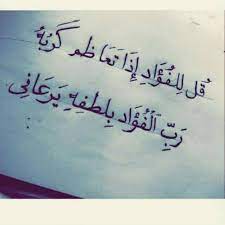 قُل لِلفُؤَادِ إِذَا تَعَاظَم كَربُهُ
رَبِّ الفُؤَادِ بِلُطفِهِ يَرعَانِي